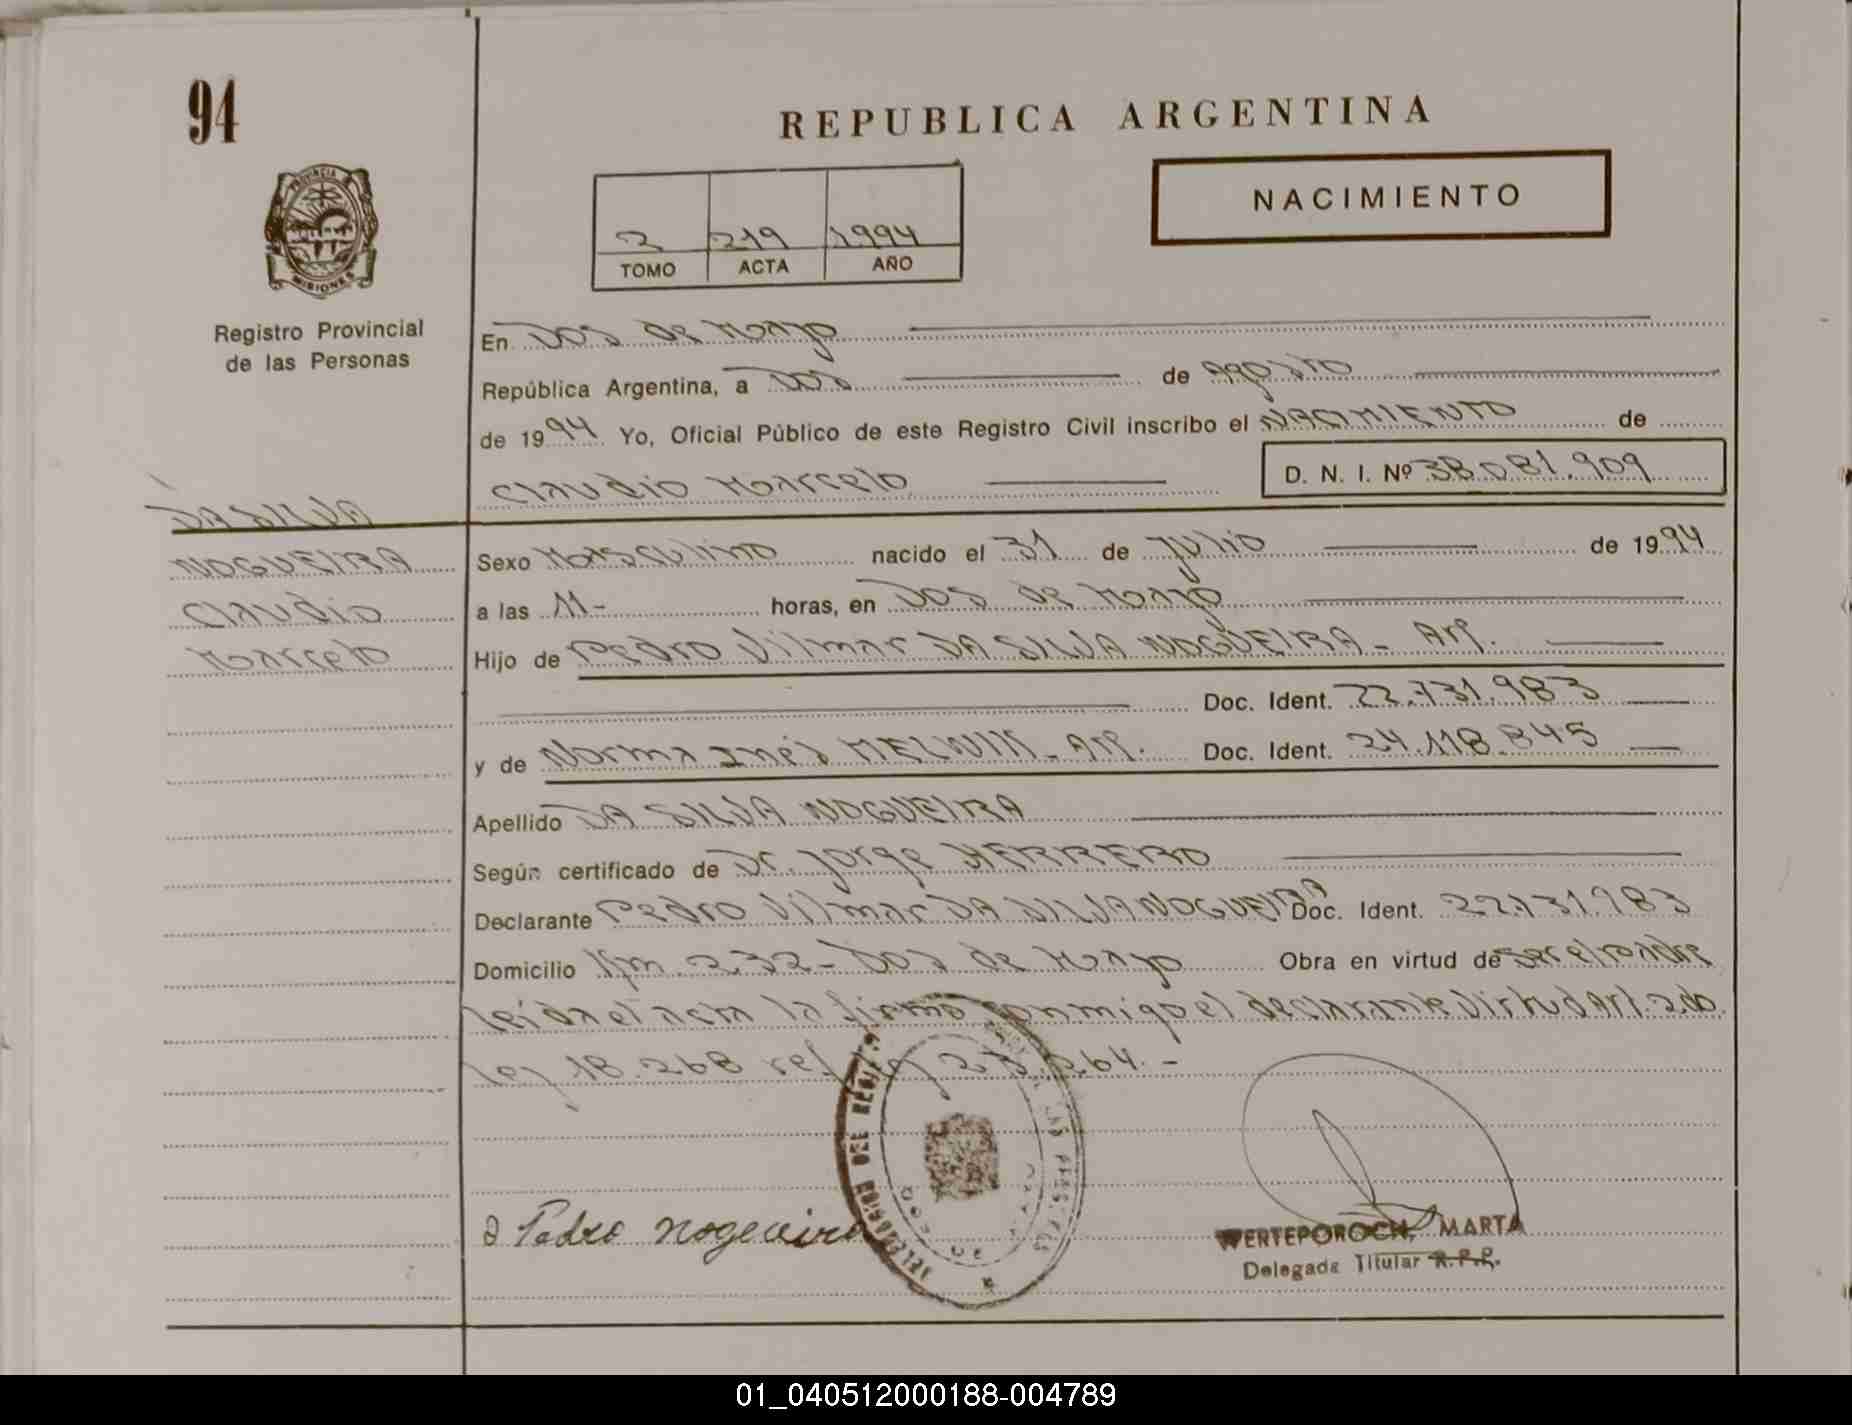 94
REPUBLICA ARGENTINA
PROVINCIA D
MISIONES
Registro Provincial
de las Personas
2 219 1994
TOMO ACTA AÑO
NACIMIENTO
En Dos de Mayo
República Argentina, a Dos de Agosto
de 1994 Yo, Oficial Público de este Registro Civil inscribo el NACIMIENTO de
Claudio Marcelo D. N. I. Nº 38.081.909
DA SILVA
NOGUEIRA
Claudio
Marcelo
Sexo Masculino nacido el 31 de Julio de 1994
a las 11- horas, en Dos de Mayo
Hijo de Pedro Vilmar DA SILVA NOGUEIRA - Arg.
Doc. Ident. 22.731.983
y de Norma Inés Arg. Doc. Ident. 24.118.845
Apellido DA SILVA NOGUEIRA
Según certificado de Dr. Jorge HERRERO
Declarante Pedro Vilmar DA SILVA NOGUEIRA Doc. Ident. 22.731.983
Domicilio Km. 232 - Dos de Mayo Obra en virtud de ser el padre
leida el acta la firma conmigo el declarante Virtud Art. 2do.
ley 18.268 ref. 264.-
Pedro Nogeueira
WERTEPOROCH, MARTA
Delegada Titular R.P.P.
01_040512000188-004789